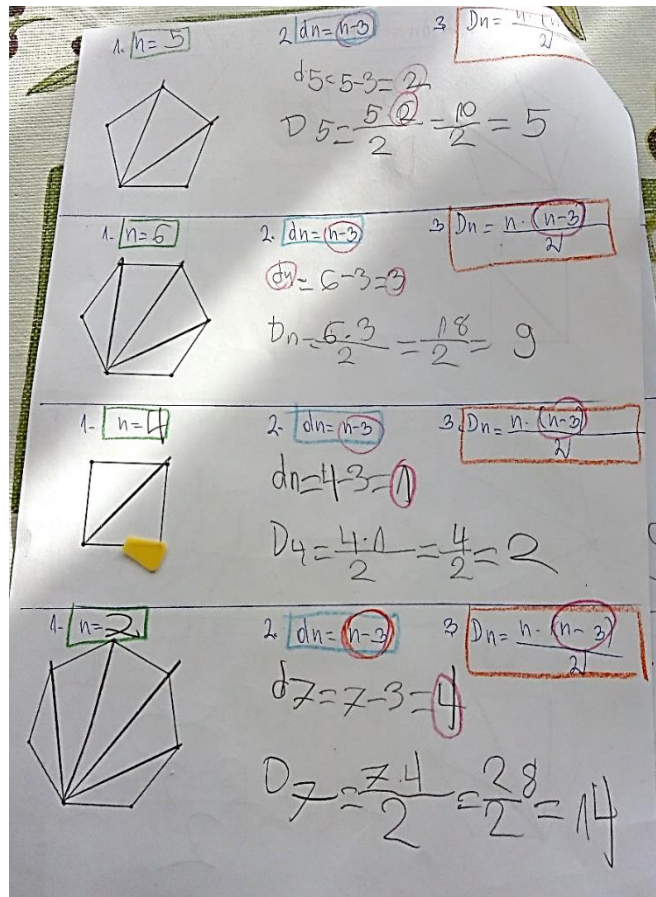 1. n=5 2 dn=n-3 3 Dn= n·(n
2
d5=5-3=2
D5= 5·2/2 = 10/2 = 5
1- n=6 2. dn=n-3 3 Dn= n·(n-3)/2
dn=6-3=3
Dn= 6·3/2 = 18/2 = 9
1- n=4 2- dn=n-3 3. Dn= n·(n-3)/2
dn=4-3=1
D4= 4·1/2 = 4/2 = 2
1- n=2 2. dn=n-3 3 Dn= n·(n-3)/2
d7=7-3=4
D7= 7·4/2 = 28/2 = 14